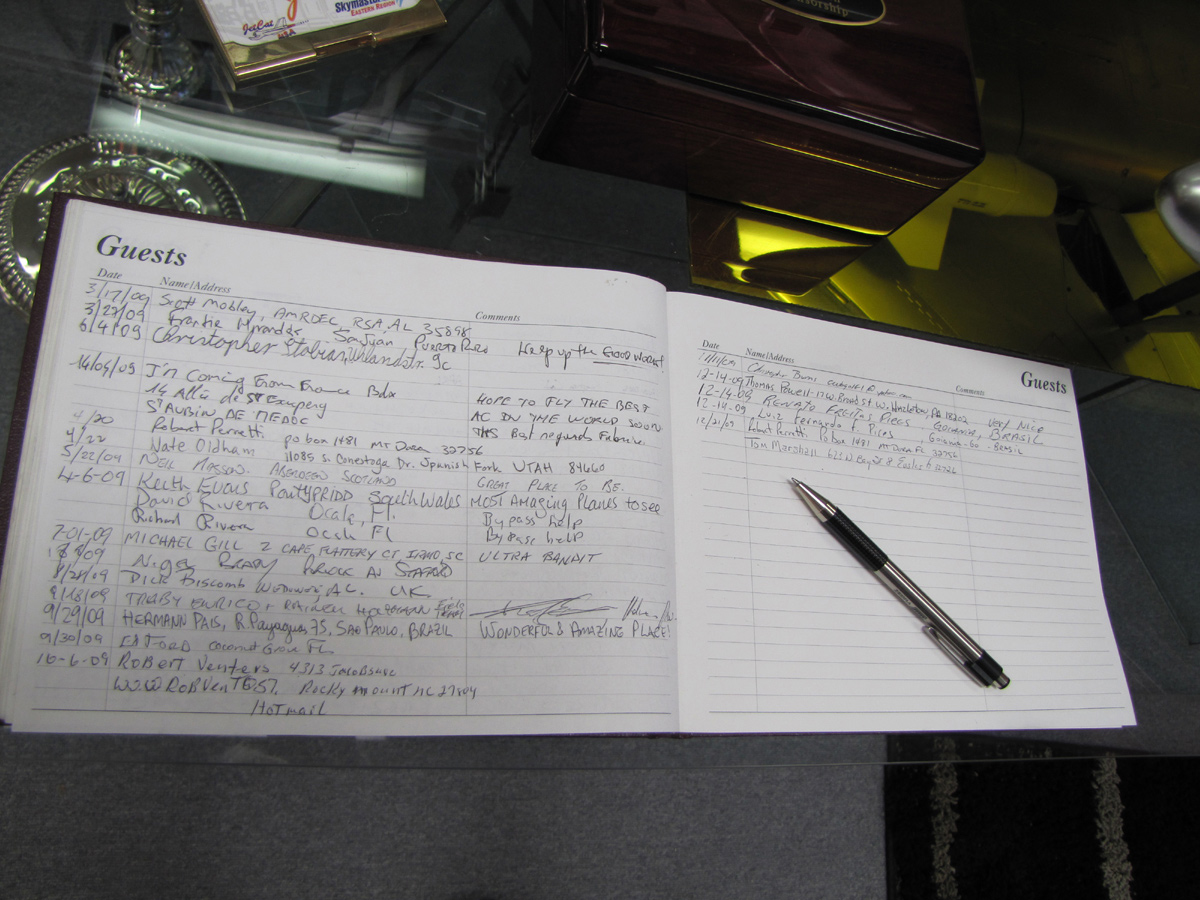 JetCat
USA
Skymaster
EASTERN REGION
Guests
Date Name/Address Comments
3/17/09 Scott Mobley, AMRDEC, RSA, AL 35898
3/27/09 Frankie Miranda San Juan, Puerto Rico Keep up the GOOD WORK!
6/4/09 Christopher 9c
14/05/09 I'm Coming From France Bdx
14 Allée de St Exupery HOPE TO FLY THE BEST
St AUBIN DE MEDOC AC IN THE WORLD SOON
4/20 Robert Perretti po box 1481 MT Dora 32756 THS Best regards
4/22 Nate Oldham 11085 S. Conestoga Dr. Spanish Fork UTAH 84660
5/22/09 NEIL MASSON. ABERDEEN SCOTLAND GREAT PLACE TO BE.
4-6-09 Keith Evans PontyPRIDD South Wales MOST Amazing Planes to see
David Rivera Ocala, Fl. Bypass help
Richard Rivera Ocala Fl Bypass help
7-01-09 MICHAEL GILL 2 CAPE FLATTERY CT SC ULTRA BANDIT
8/09
8/28/09 DICK Biscomb U.K.
9/18/09 ENRICO +
9/29/09 HERMANN PAIS, R. Payaguas 75, SAO PAULO, BRAZIL WONDERFUL & AMAZING PLACE!
9/30/09 Ed FORD Coconut Grove FL
10-6-09 ROBERT Venters 4313
WWW ROBVenT@ST. Rocky mount nc 27804
HoTmail
Guests
Date Name/Address Comments
Christopher
12-14-09 Thomas Powell-17 W. Broad St W. Hazleton, PA 18202 Very Nice
12-14-09 RENATO FREITAS PIRES GOIANIA, BRASIL
12-14-09 Luiz Fernando F. Pires, Goiania-GO - Brasil
12/21/09 Robert Perretti Po box 1481 MT Dora FL 32756
Tom Marshall 621 N Bay St Eustis fl 32726